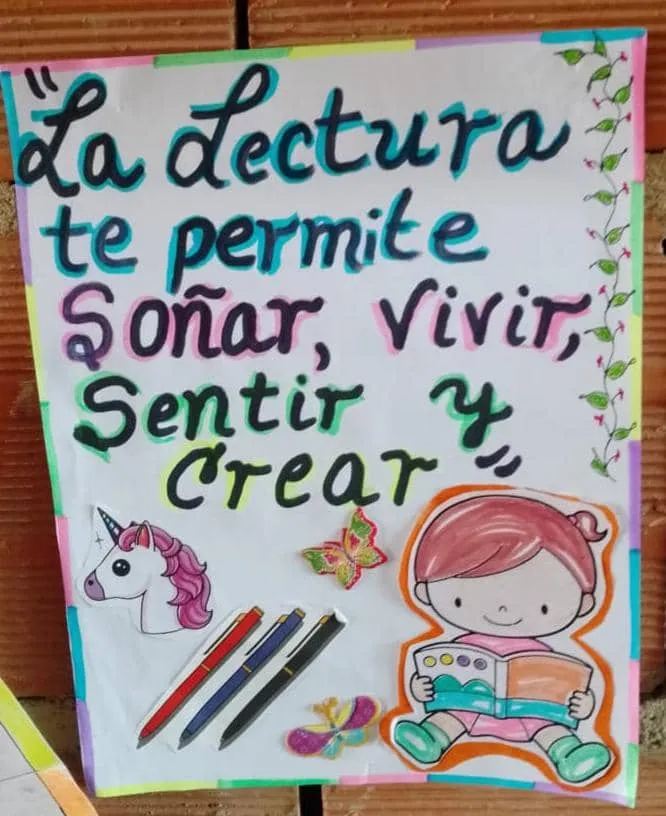 "La Lectura
te permite
Soñar, Vivir,
Sentir y
Crear"